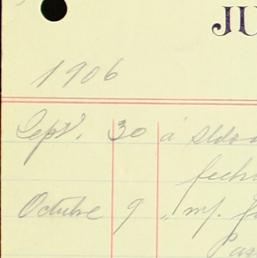 JU
1906
Sept. 30 a Sldo
fech
Octubre 9 " m/. f
Pag